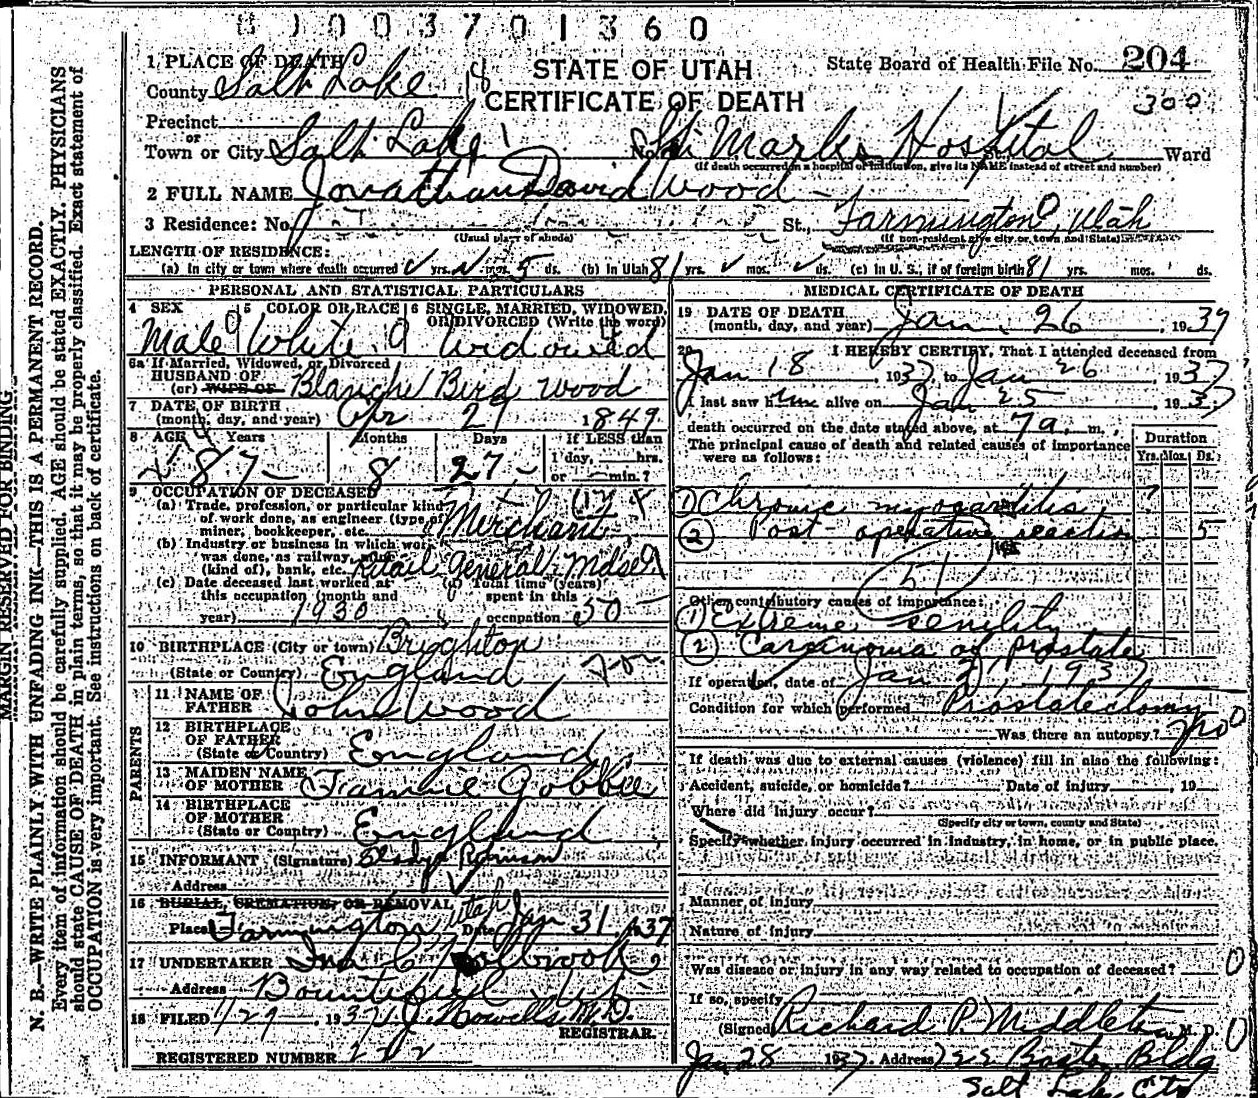 8 1 0 0 3 7 0 1 3 6 0
STATE OF UTAH
CERTIFICATE OF DEATH
State Board of Health File No. 204
300
1. PLACE OF DEATH
County Salt Lake 18
Precinct
or
Town or City Salt Lake No. St. Marks Hospital Ward
(If death occurred in a hospital or institution, give its NAME instead of street and number)
2 FULL NAME Jonathan David Wood
3 Residence: No. St., Farmington, Utah
(Usual place of abode) (If non-resident give city or town and State)
LENGTH OF RESIDENCE:
(a) In city or town where death occurred yrs. mos. 5 ds. (b) In Utah 81 yrs. mos. ds. (c) In U. S., if of foreign birth 81 yrs. mos. ds.
PERSONAL AND STATISTICAL PARTICULARS
4 SEX 5 COLOR OR RACE 6 SINGLE, MARRIED, WIDOWED, OR DIVORCED (Write the word)
Male White Widowed
6a If Married, Widowed, or Divorced
HUSBAND OF
(or) WIFE OF Blanche Bird Wood
7 DATE OF BIRTH
(month, day, and year) Apr 29 1849
8 AGE Years Months Days If LESS than
1 day, hrs.
or min.?
87 8 27
9 OCCUPATION OF DECEASED
(a) Trade, profession, or particular kind
of work done, as engineer (type of)
miner, bookkeeper, etc. Merchant
(b) Industry or business in which work
was done, as railway, mine
(kind of), bank, etc. Retail General Mdse
(c) Date deceased last worked at
this occupation (month and
year) 1930
(d) Total time (years)
spent in this
occupation 50
10 BIRTHPLACE (City or town) Brighton
(State or Country) England
PARENTS
11 NAME OF
FATHER John Wood
12 BIRTHPLACE
OF FATHER
(State or Country) England
13 MAIDEN NAME
OF MOTHER Fannie Gobble
14 BIRTHPLACE
OF MOTHER
(State or Country) England
15 INFORMANT (Signature) Gladys Robinson
Address
16 BURIAL, CREMATION, OR REMOVAL
Place Farmington Utah Date Jan 31, 1937
17 UNDERTAKER Holbrook
Address Bountiful Utah
18 FILED 1/29 1937 Howells M.D.
REGISTRAR.
REGISTERED NUMBER 212
MEDICAL CERTIFICATE OF DEATH
19 DATE OF DEATH
(month, day, and year) Jan. 26, 1937
20 I HEREBY CERTIFY, That I attended deceased from
Jan 18, 1937, to Jan 26 1937
I last saw him alive on Jan 25 1937
death occurred on the date stated above, at 7 a. m.
The principal cause of death and related causes of importance
were as follows:
Duration
Yrs. Mos. Ds.
1) Chronic myocarditis ?
2 Post-operative reaction 5
51
Other contributory causes of importance:
1) Extreme senility
2) Carcinoma of prostate
If operation, date of Jan 21, 1937
Condition for which performed Prostatectomy
Was there an autopsy? no
If death was due to external causes (violence) fill in also the following:
Accident, suicide, or homicide? Date of injury , 19
Where did injury occur?
(Specify city or town, county and State)
Specify whether injury occurred in industry, in home, or in public place.
Manner of injury
Nature of injury
Was disease or injury in any way related to occupation of deceased? 0
If so, specify
(Signed) Richard P. Middleton M. D. 0
Jan 28 1937. Address 722 Boston Bldg
Salt Lake City
MARGIN RESERVED FOR BINDING
N. B.—WRITE PLAINLY WITH UNFADING INK—THIS IS A PERMANENT RECORD.
Every item of information should be carefully supplied. AGE should be stated EXACTLY. PHYSICIANS
should state CAUSE OF DEATH in plain terms, so that it may be properly classified. Exact statement of
OCCUPATION is very important. See instructions on back of certificate.